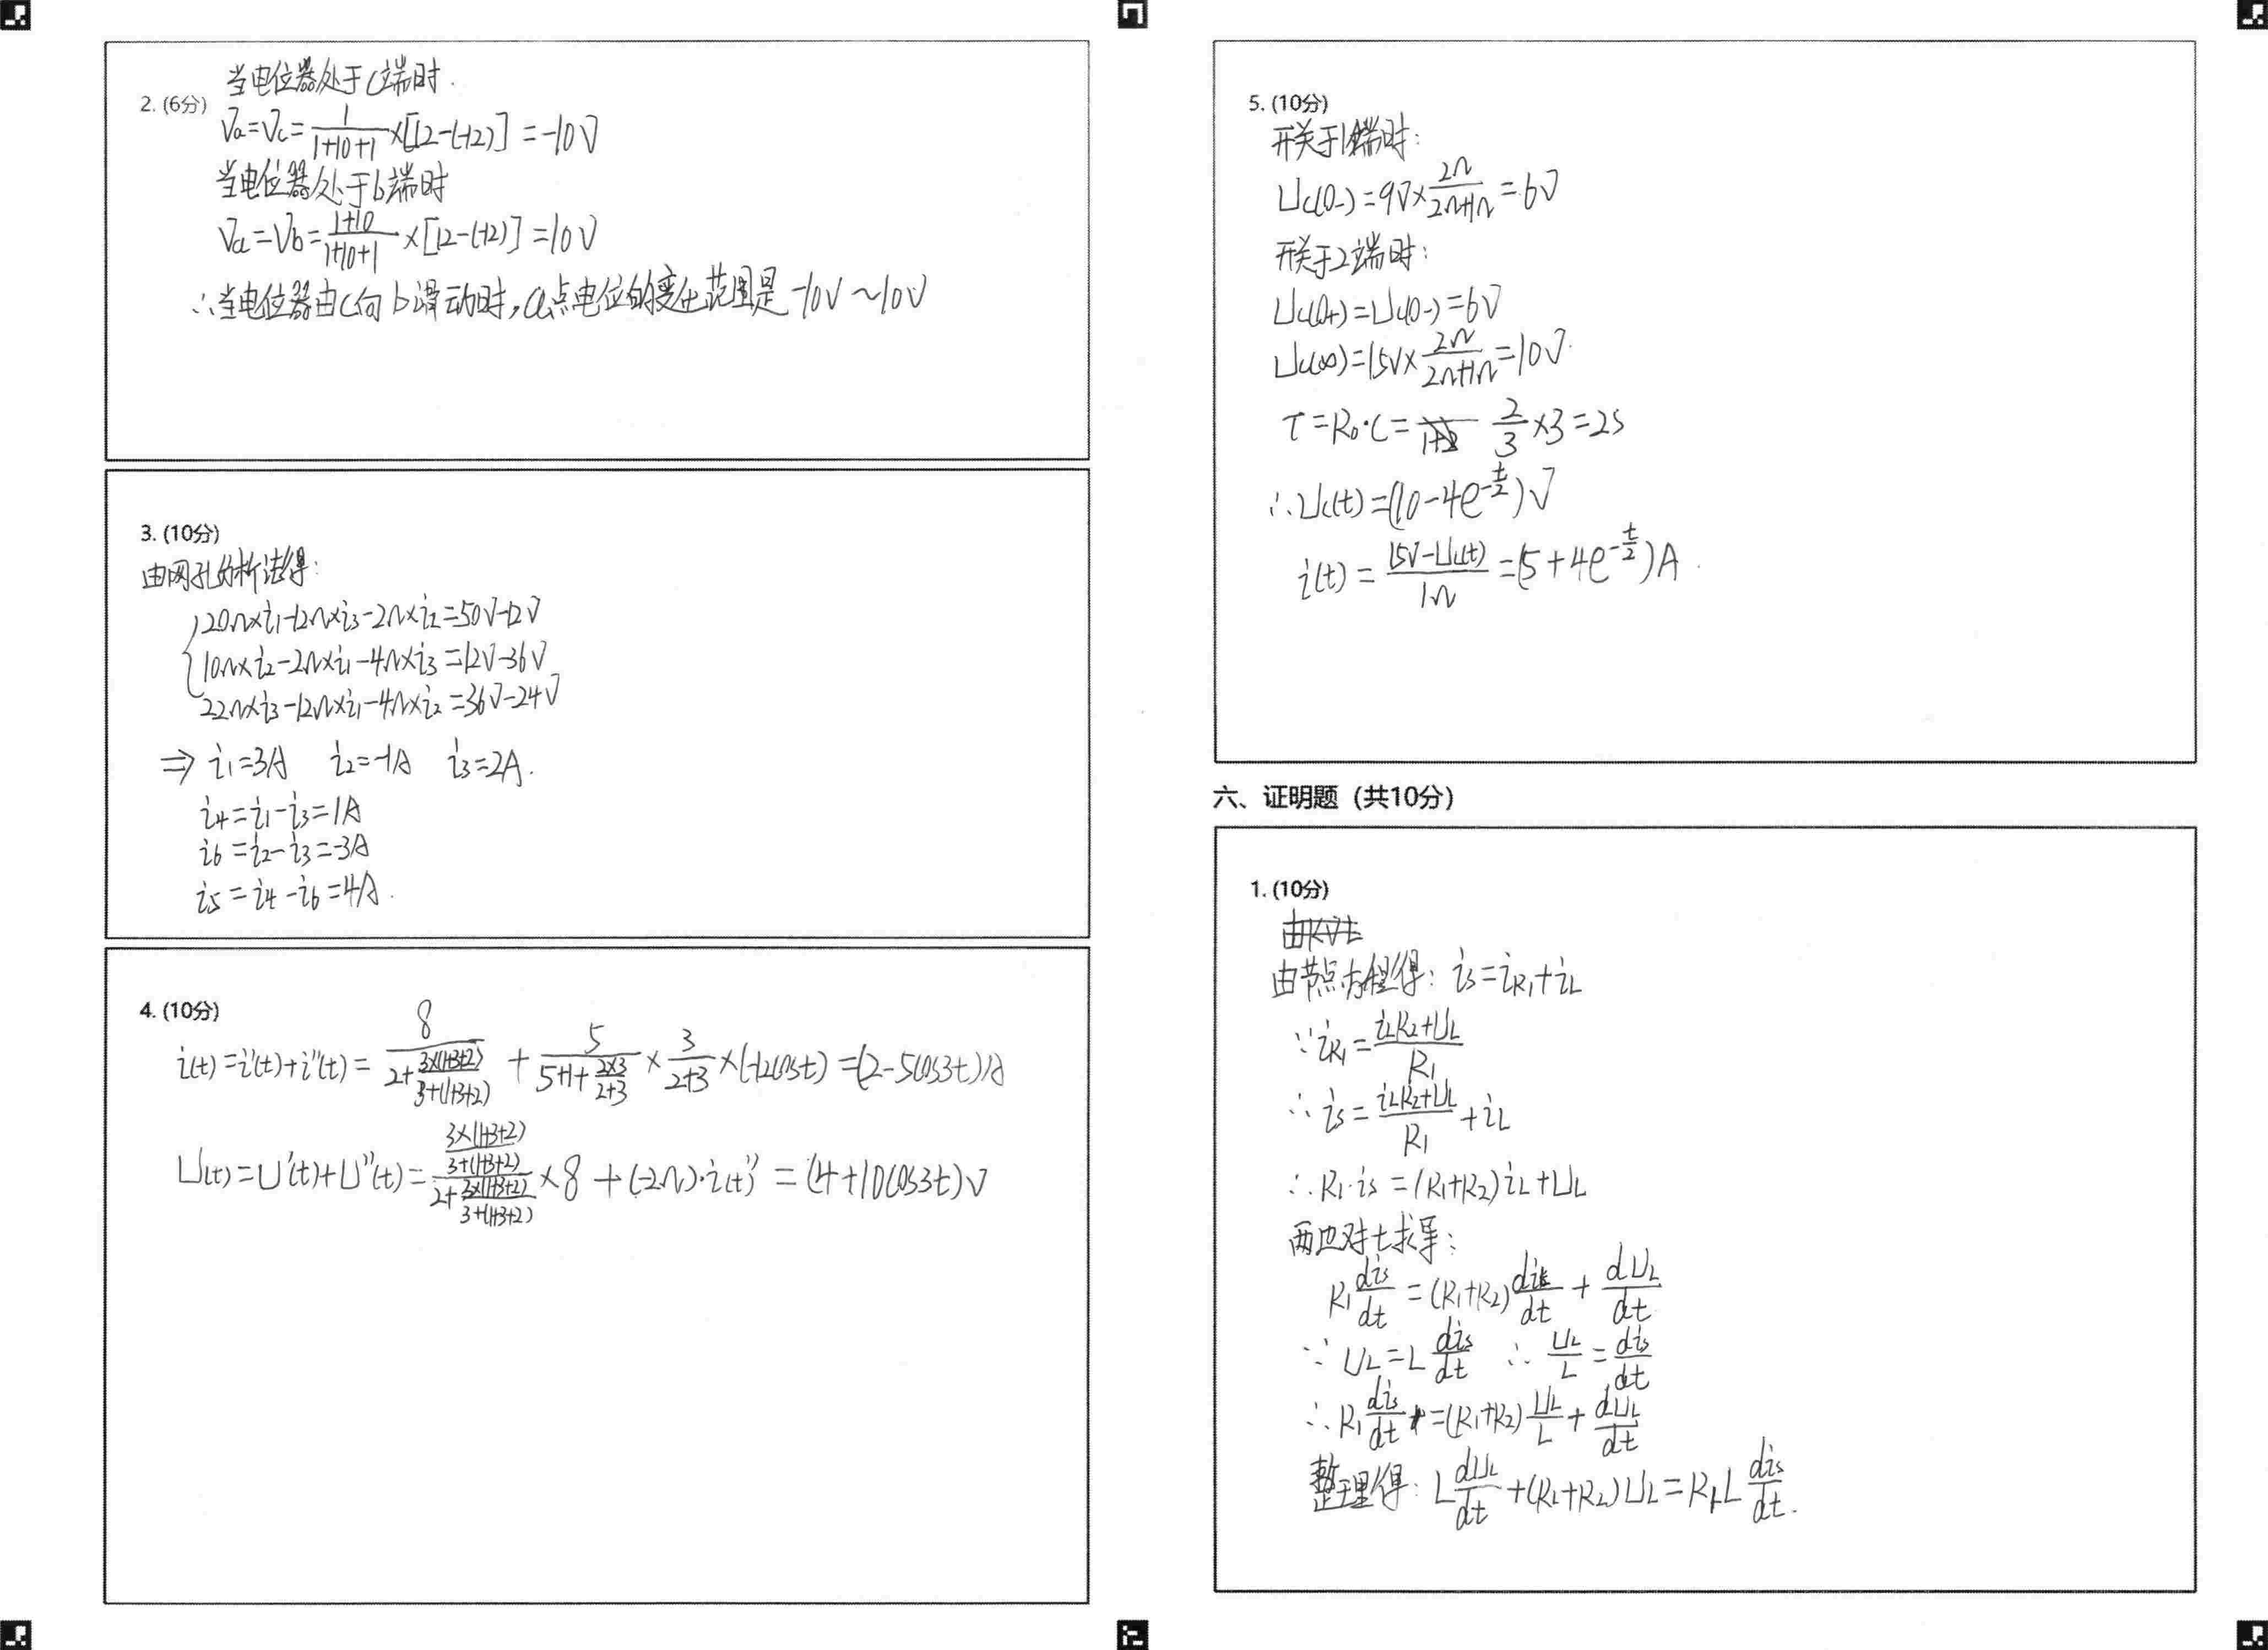 当电位器处于C端时.
2. (6分)
Va=Vc=1/(1+10+1)×[12-(-12)]=-10V
当电位器处于b端时
Va=Vb=(1+10)/(1+10+1)×[12-(-12)]=10V
∴当电位器由C向b滑动时,a点电位的变化范围是-10V~10V
3. (10分)
由网孔分析法得:
20Ω×i1-12Ω×i3-2Ω×i2=50V-12V
10Ω×i2-2Ω×i1-4Ω×i3=12V-36V
22Ω×i3-12Ω×i1-4Ω×i2=36V-24V
⇒ i1=3A i2=-1A i3=2A.
i4=i1-i3=1A
i6=i2-i3=-3A
i5=i4-i6=4A.
4. (10分)
i(t)=i'(t)+i''(t)=8/(2+(3×(1+3+2))/(3+(1+3+2)))+5/(5+1+(2×3)/(2+3))×3/(2+3)×(-12cos t)=(2-5cos3t)A
U(t)=U'(t)+U''(t)=((3×(1+3+2))/(3+(1+3+2)))/(2+(3×(1+3+2))/(3+(1+3+2)))×8+(-2Ω)·i(t)''=(4+10cos3t)V
5. (10分)
开关于1端时:
Uc(0-)=9V×2Ω/(2Ω+1Ω)=6V
开关于2端时:
Uc(0+)=Uc(0-)=6V
Uc(∞)=15V×2Ω/(2Ω+1Ω)=10V.
τ=R0·C=2/3×3=2s
∴Uc(t)=(10-4e^(-t/2))V
i(t)=(15V-Uc(t))/1Ω=(5+4e^(-t/2))A.
六、证明题（共10分）
1. (10分)
由KVL
由节点方程得: is=iR1+iL
∵iR1=(iLR2+UL)/R1
∴is=(iLR2+UL)/R1+iL
∴R1·is=(R1+R2)iL+UL
两边对t求导:
R1 dis/dt=(R1+R2)diL/dt+dUL/dt
∵UL=L dis/dt ∴UL/L=dis/dt
∴R1 dis/dt=(R1+R2)UL/L+dUL/dt
整理得: L dUL/dt+(R1+R2)UL=R1L dis/dt.